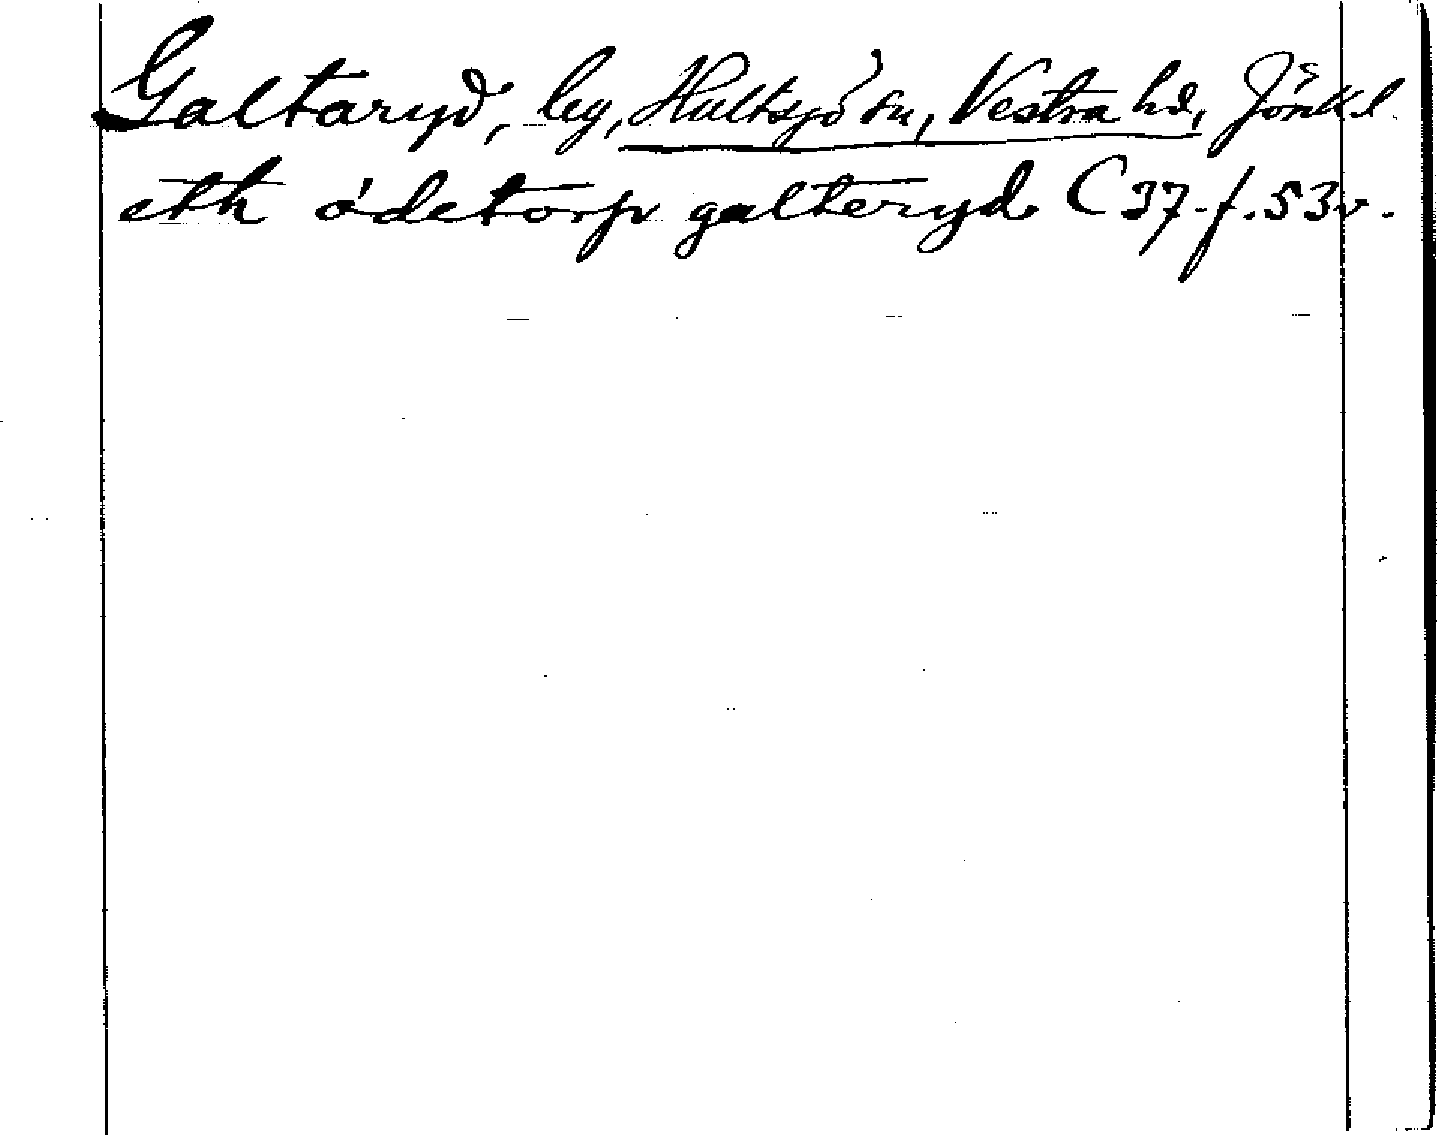 Galtaryd, leg, Hultsjö sn, Vestra hd, Jönk. l.
eth ödetorp galteryd C 37. f. 53 v.